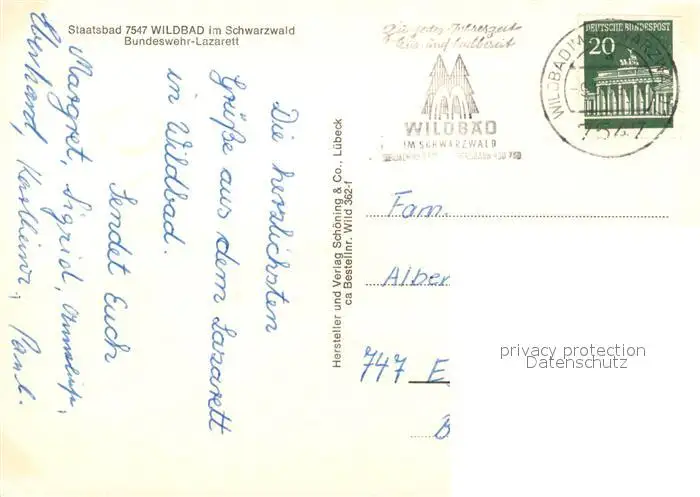 Staatsbad 7547 WILDBAD im Schwarzwald
Bundeswehr-Lazarett
Die herzlichsten
Grüße aus dem Lazarett
in Wildbad.
Sendet Euch
Margret, Sigrid,
Eberhard, Karlheinz, Paul.
Hersteller und Verlag Schöning & Co., Lübeck
ca Bestellnr. Wild 362-f
Zu jeder Jahreszeit
kur- und badbereit
WILDBAD
IM SCHWARZWALD
WILDBAD IM SCHWARZW
7547
DEUTSCHE BUNDESPOST
20
Fam.
Alber
747 E
B
privacy protection
Datenschutz